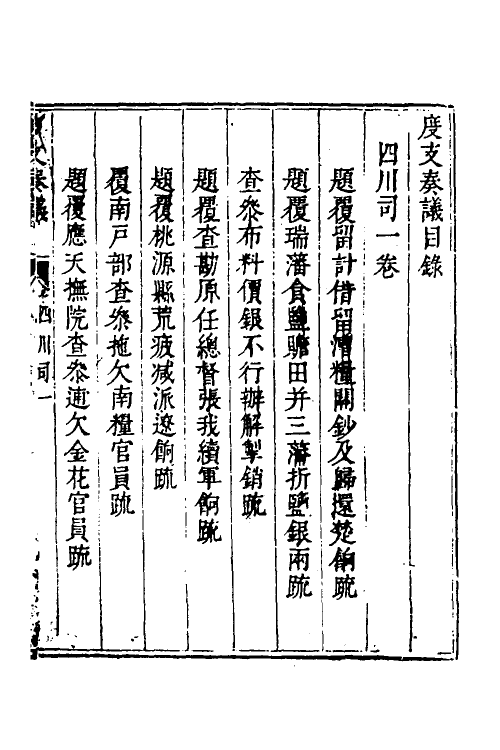 度支奏議目錄
四川司一卷
題覆留計借留漕糧關鈔及歸還楚餉疏
題覆瑞藩食鹽贍田并三藩折鹽銀兩疏
查參布料價銀不行辦解掣銷疏
題覆查勘原任總督張我續軍餉疏
題覆桃源縣荒疲減派遼餉疏
覆南戶部查參拖欠南糧官員疏
題覆應天撫院查參逋欠金花官員疏
四川司一